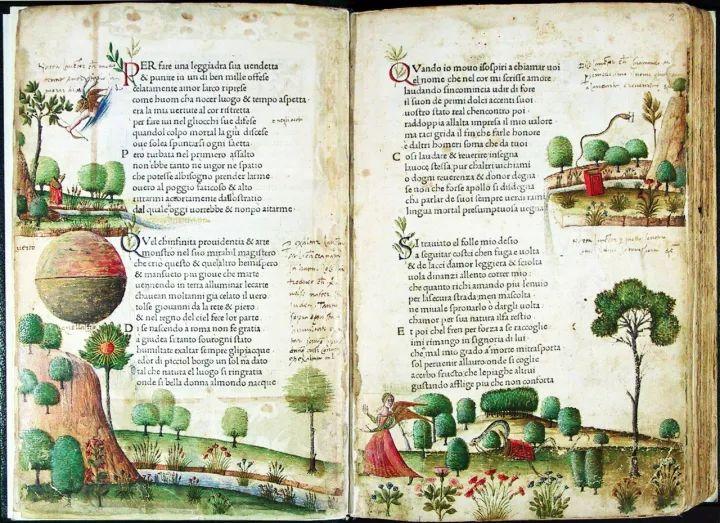 PER fare una leggiadra sua uendetta
& punire in un di ben mille offese
celatamente amor larco riprese
come huom cha nocer luogo & tempo aspetta.
era la mia uertute al cor ristretta
per fare iui nel gliocchi sue difese
quandol colpo mortal la giu discese
oue solea spuntarsi ogni saetta
Pero turbata nel primiero assalto
non ebbe tanto ne uigor ne spatio
che potesse albisogno prender larme
ouero al poggio faticoso & alto
ritrarmi accortamente dallostratio
dal quale oggi uorrebbe & nonpo aitarme.
QVel chinfinita prouidentia & arte
mostro nel suo mirabil magistero
che crio questo & quelaltro hemispero
& mansueto piu gioue che marte
uenendo in terra alluminar lecarte
chauean moltanni gia celato il uero
tolse giouanni da la rete & piero
& nel regno del ciel fece lor parte.
Di se nascendo a roma non fe gratia
a giudea si tanto sourogni stato
humiltate exaltar sempre glipiacque
edor di picciol borgo un sol na dato
tal che natura el luogo si ringratia
onde si bella donna almondo nacque
QVando io mouo isospiri a chiamar uoi
el nome che nel cor mi scrisse amore
laudando sincomincia udir di fore
il suon de primi dolci accenti suoi
uostro stato real chencontro poi
raddoppia allalta impresa il mio ualore
ma taci grida il fin che farle honore
e daltri homeri soma che da tuoi
Cosi laudare & reuerire insegna
la uoce stessa pur chaltri uichiami
o dogni reuerenza & donor degna
se non che forse apollo si disdegna
cha parlar de suoi sempre uerai rami
lingua mortal presumptuosa uegna
SI trauiato el folle mio desio
a seguitar costei chen fuga e uolta
& de lacci damor leggiera & sciolta
uola dinanzi allento correr mio:
che quanto richiamando piu lenuio
per lasecura strada men mascolta
ne miuale spronarlo o dargli uolta
chamor per sua natura ilfa restio
Et poi chel fren per forza a se raccoglie
imi rimango in signoria di lui
che mal mio grado a morte mitrasporta
sol peruenir allauro onde si coglie
acerbo fructo che lepiaghe altrui
gustando afflige piu che non conforta